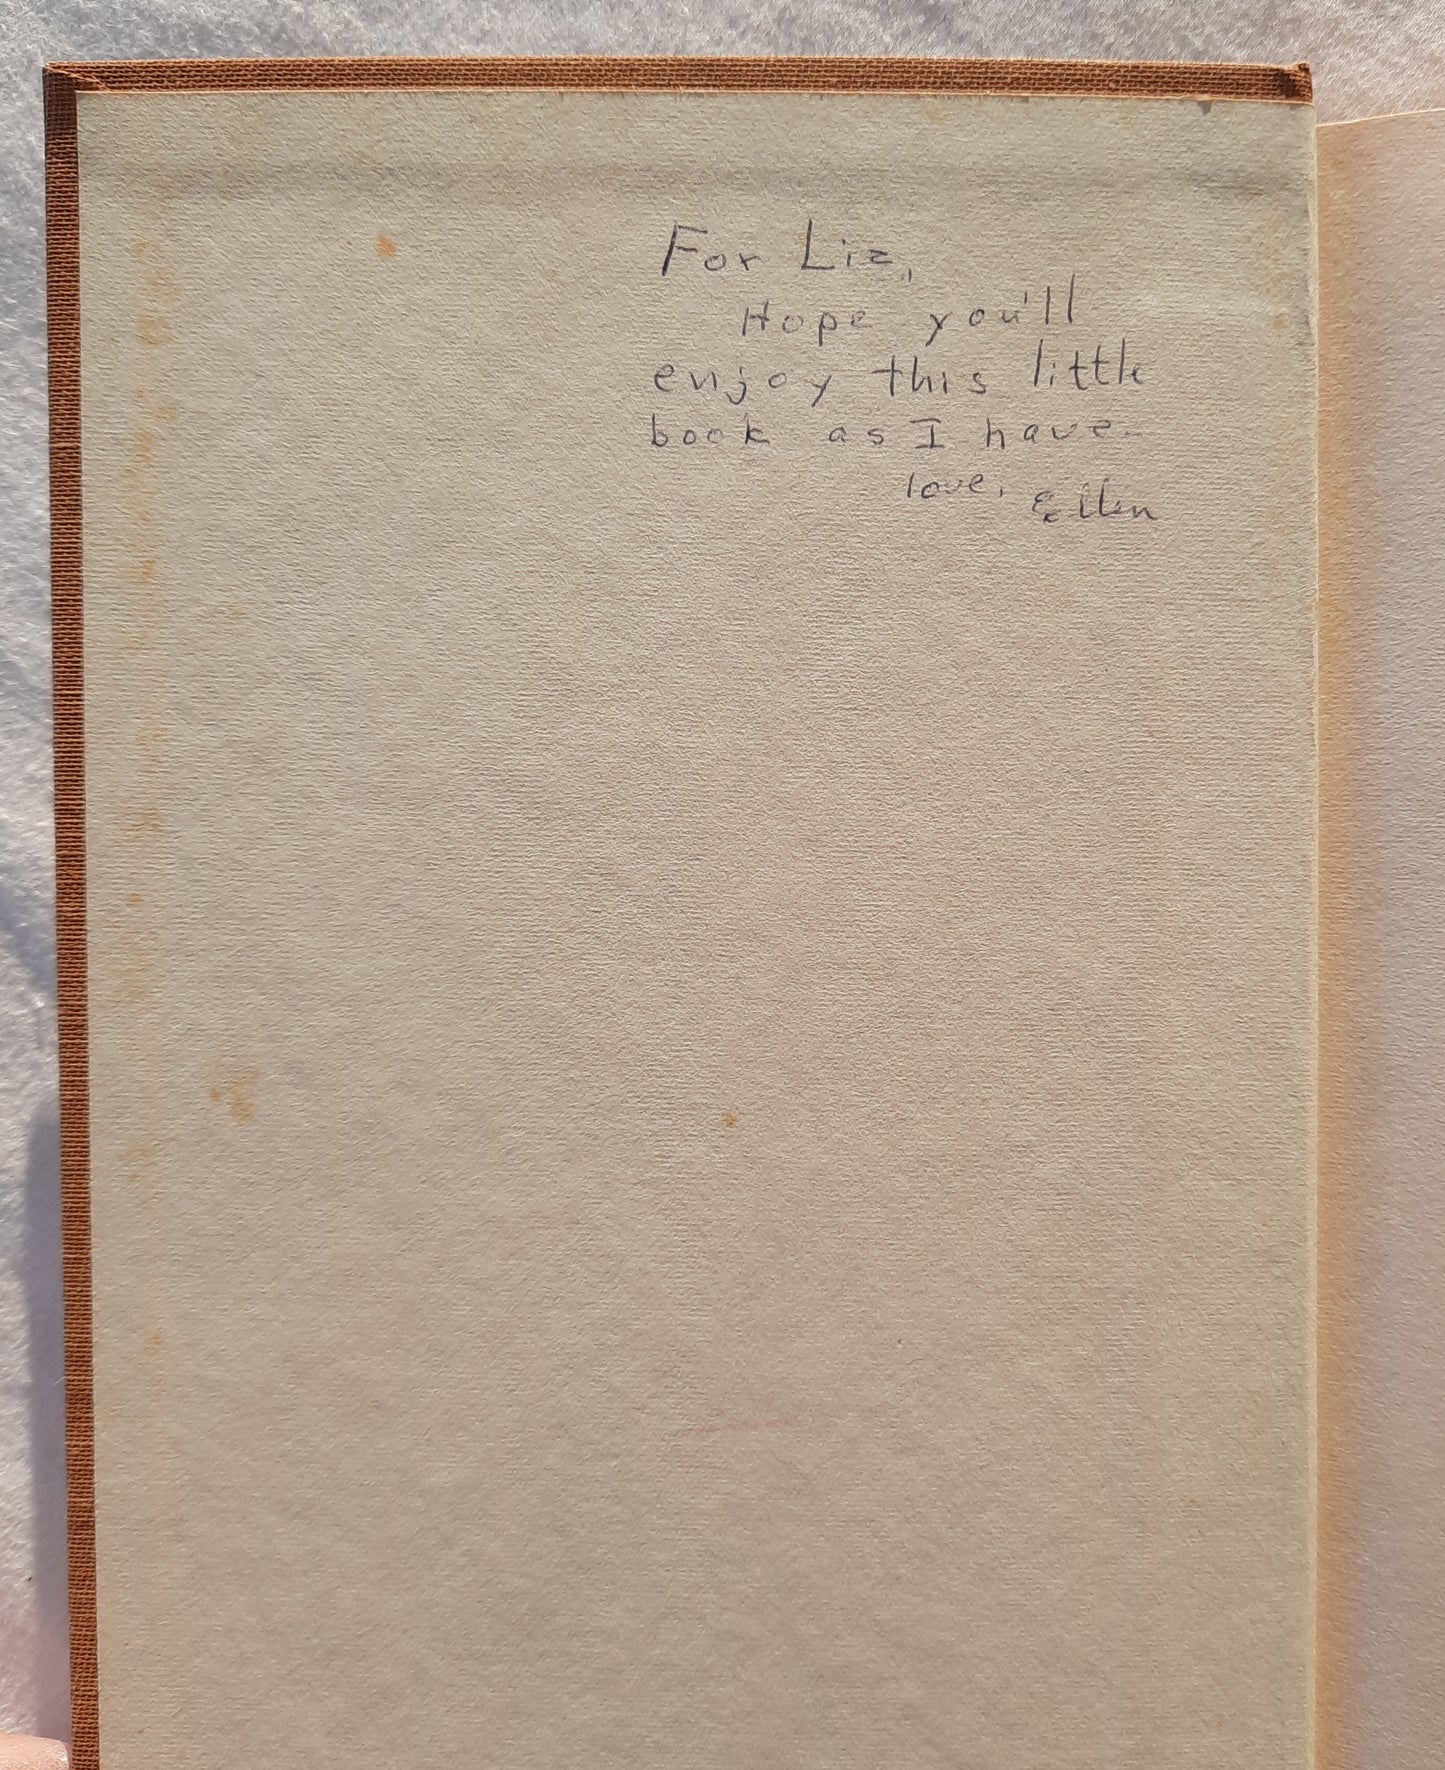 For Liz,
Hope you'll
enjoy this little
book as I have.
love, Ellen